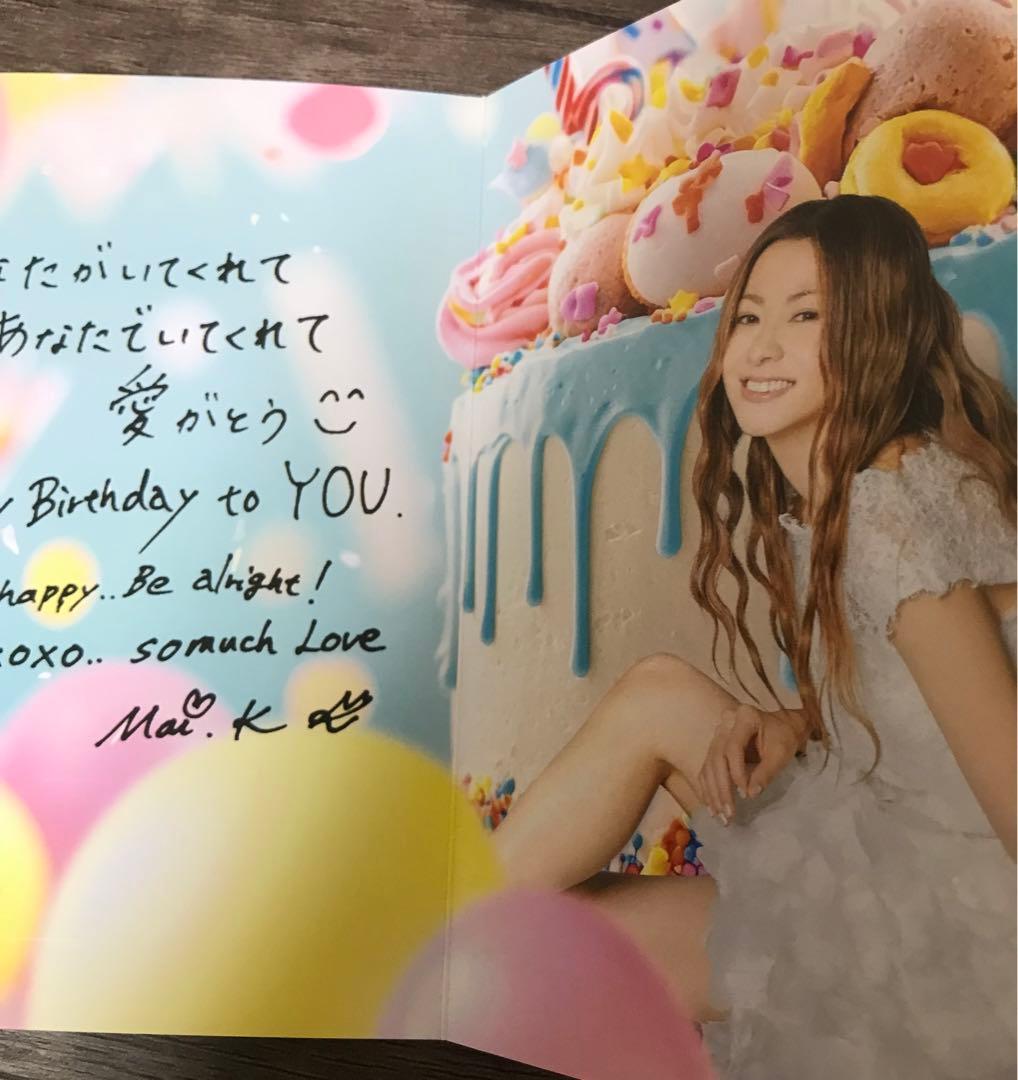 たがいてくれて
あなたでいてくれて
愛がとう
Birthday to YOU.
happy.. Be alright!
xoxo.. so much Love
Mai. K